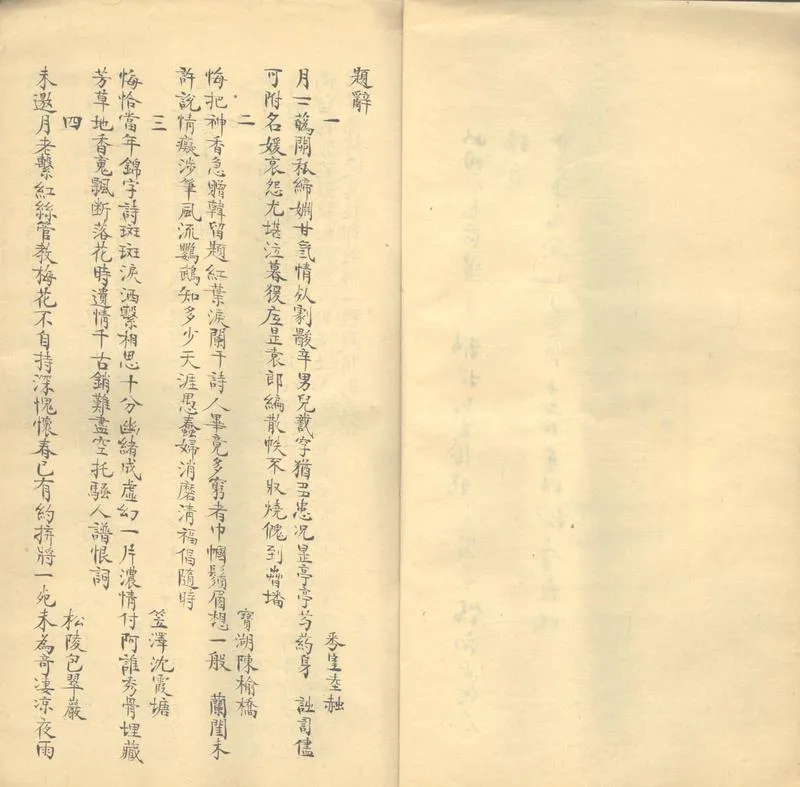 題辭
一
月 關私締 情 辛男兒識字猶 患況是亭亭芍药身 司儘
可附名媛哀怨尤堪泣暮猨 是袁郎編散帙不收燒愧到
二 寶湖陳榆橋
悔把神香急贈韓留題紅葉淚闌干詩人畢竟多窮者巾幗鬚眉想一般 蘭閨未
許說情癡涉筆風流鸚鵡知多少天涯愚蠢婦消磨清福倡隨時
三 笠澤沈霞塘
悔恰當年錦字詩斑斑淚洒繫相思十分幽緒成虛幻一片濃情付阿誰秀骨埋藏
芳草地香魂飄断落花時遺情千古銷難盡空托騷人譜恨詞
四 松陵包翠巖
未邀月老繫紅絲管教梅花不自持深愧懷春已有約拚將一死未為奇凄凉夜雨